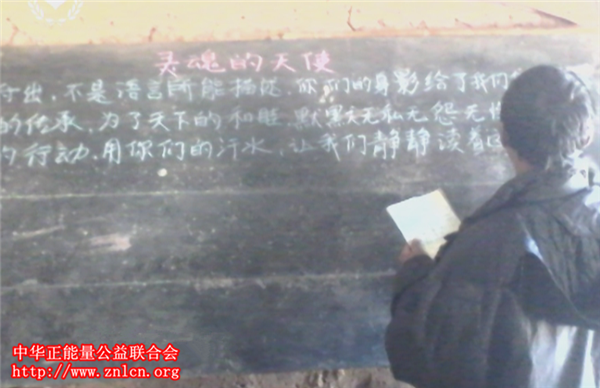 灵魂的天使
付出,不是语言所能描述,你们的身影给了我们
的传承,为了天下的和睦,默默无私无怨无悔
的行动,用你们的汗水,让我们静静读着
中华正能量公益联合会
www.znlcn.org